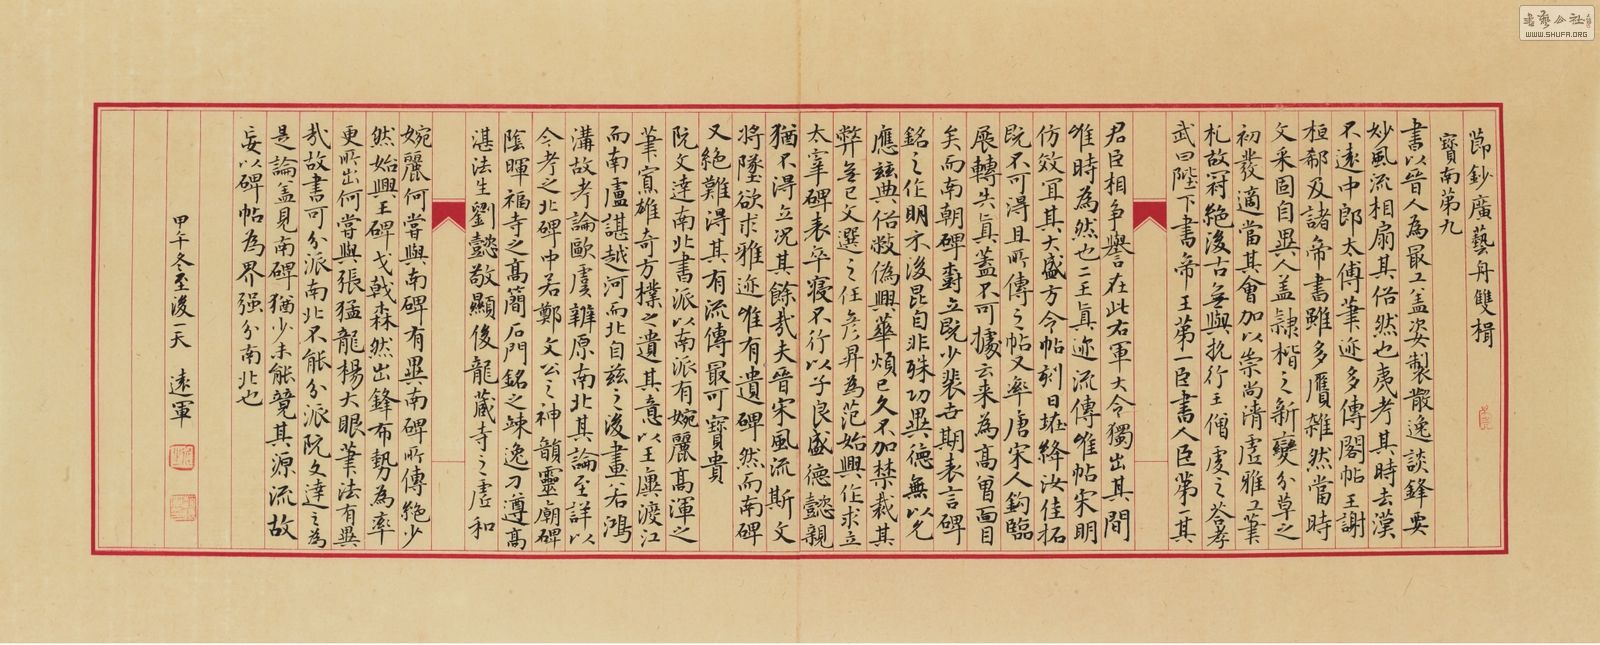 節鈔廣藝舟雙楫
寶南第九
書以晉人為最工蓋姿製散逸談鋒要
妙風流相扇其俗然也夷考其時去漢
不遠中郎太傅筆迹多傳閣帖王謝
桓郗及諸帝書雖多贋雜然當時
文采固自異人蓋隷楷之新變分草之
初發適當其會加以崇尚清虛雅工筆
札故冠絕後古無與抗行王僧虔之答孝
武曰陛下書帝王第一臣書人臣第一其
君臣相爭譽在此右軍大令獨出其間
唯時為然也二王真迹流傳唯帖宋明
仿效宜其大盛方今帖刻日壞絳汝佳拓
既不可得且所傳之帖又率唐宋人鈎臨
展轉失真蓋不可據云来為高曾面目
矣而南朝碑樹立既少裴世期表言碑
銘之作明示後昆自非殊功異德無以允
應玆典俗敝偽興華煩已久不加禁裁其
弊無已文選之任彥昇為范始興作求立
太宰碑表卒寢不行以子良盛德懿親
猶不得立況其餘哉夫晉宋風流斯文
將墜欲求雅迹唯有遺碑然而南碑
又絕難得其有流傳最可寶貴
阮文達南北書派以南派有婉麗高渾之
筆寡雄奇方樸之遺其意以王廙渡江
而南盧諶越河而北自玆之後畫若鴻
溝故考論歐虞辨原南北其論至詳以
今考之北碑中若鄭文公之神韻靈廟碑
陰暉福寺之高簡石門銘之疎逸刁遵高
湛法生劉懿敬顯後龍藏寺之虛和
婉麗何嘗與南碑有異南碑所傳絕少
然始興王碑戈戟森然出鋒布勢為率
更所出何嘗與張猛龍楊大眼筆法有異
哉故書可分派南北不能分派阮文達之為
是論蓋見南碑猶少未能竟其源流故
妄以碑帖為界強分南北也
甲午冬至後一天 遠軍
書藝公社
WWW.SHUFA.ORG